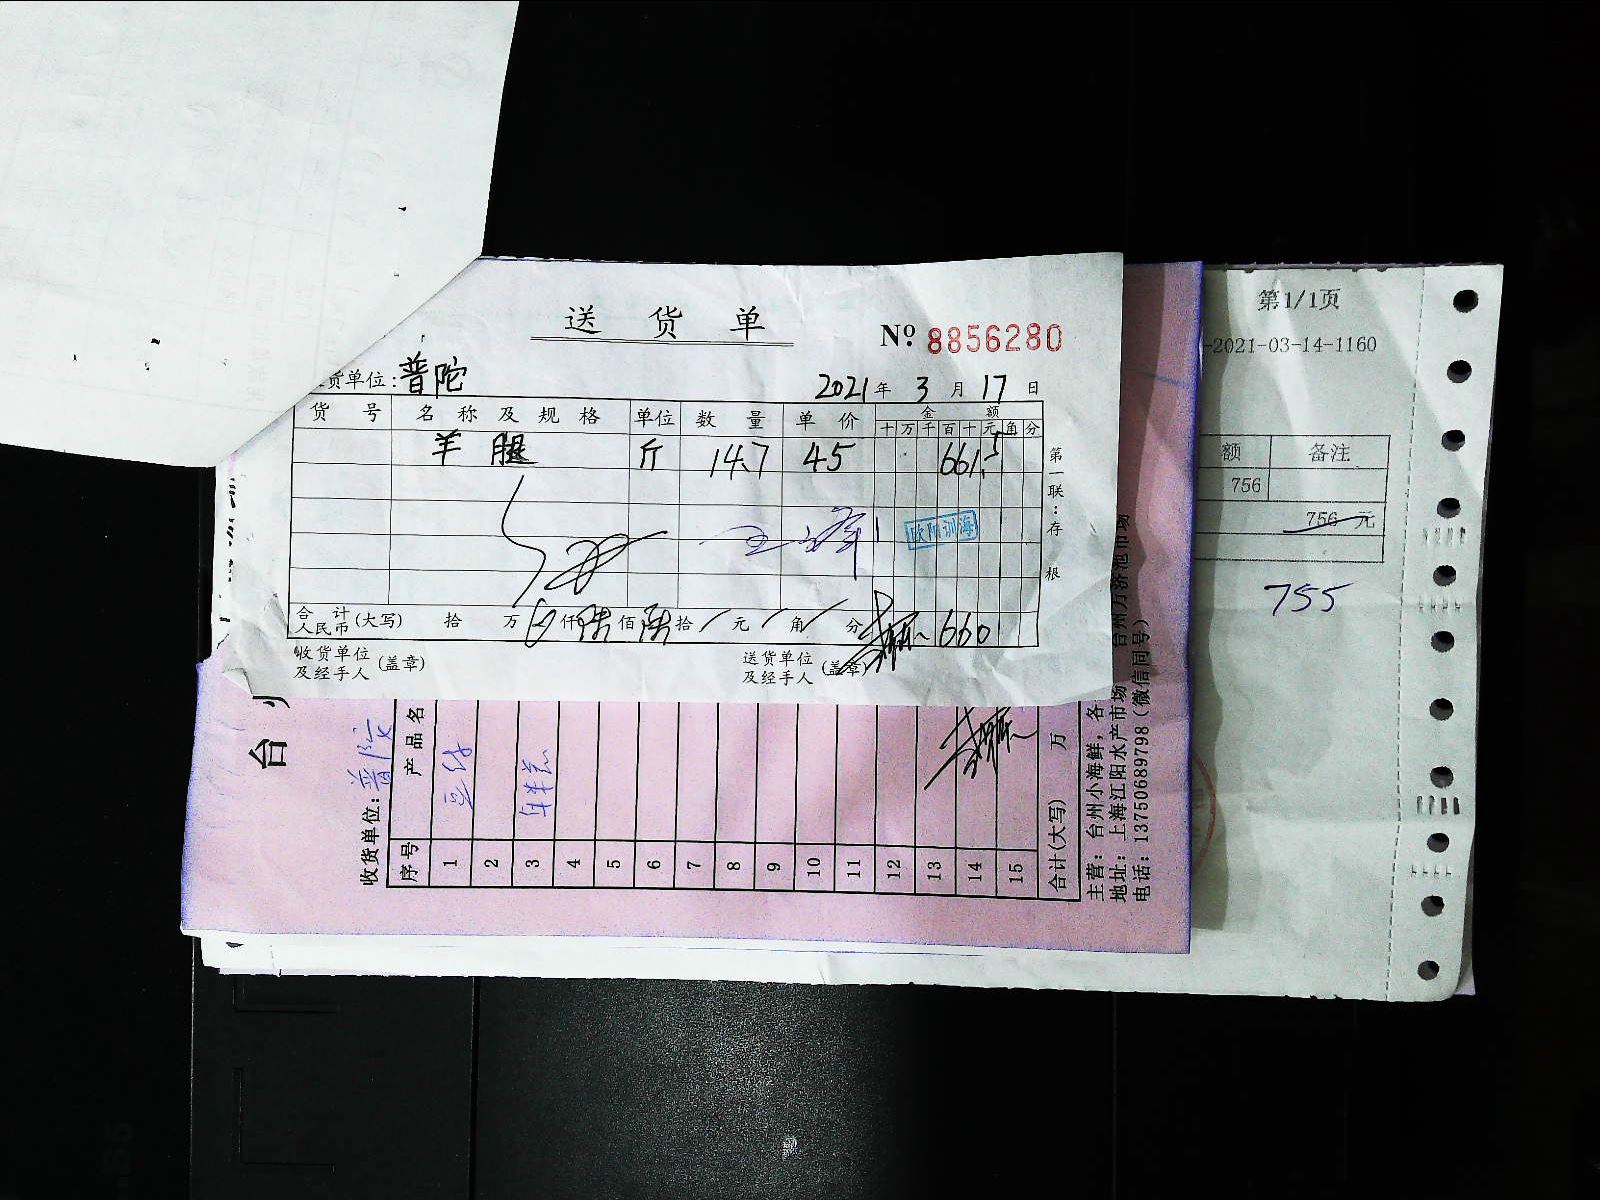 送货单
№ 8856280
货单位:普陀
2021年 3月 17日
货号 名称及规格 单位 数量 单价 金额
十 万 千 百 十 元 角 分
羊腿 斤 14.7 45 661.5
欧阳训海
合计人民币(大写) 拾 万 仟陆佰陆拾 元 角 分 660
收货单位及经手人(盖章)
送货单位及经手人(盖章)
第一联:存根
台
收货单位:普陀
序号 产品名
1
2
3
4
5
6
7
8
9
10
11
12
13
14
15
合计(大写) 万
主营:台州小海鲜,各
地址:上海江阳水产市场
电话:13750689798(微信同号)
第1/1页
-2021-03-14-1160
额 备注
756
756 元
755